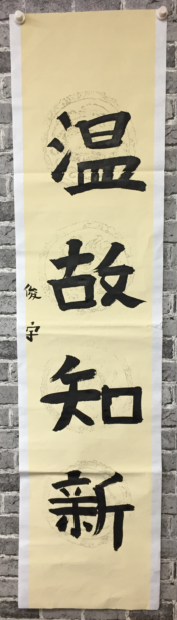 温故知新
俊宇